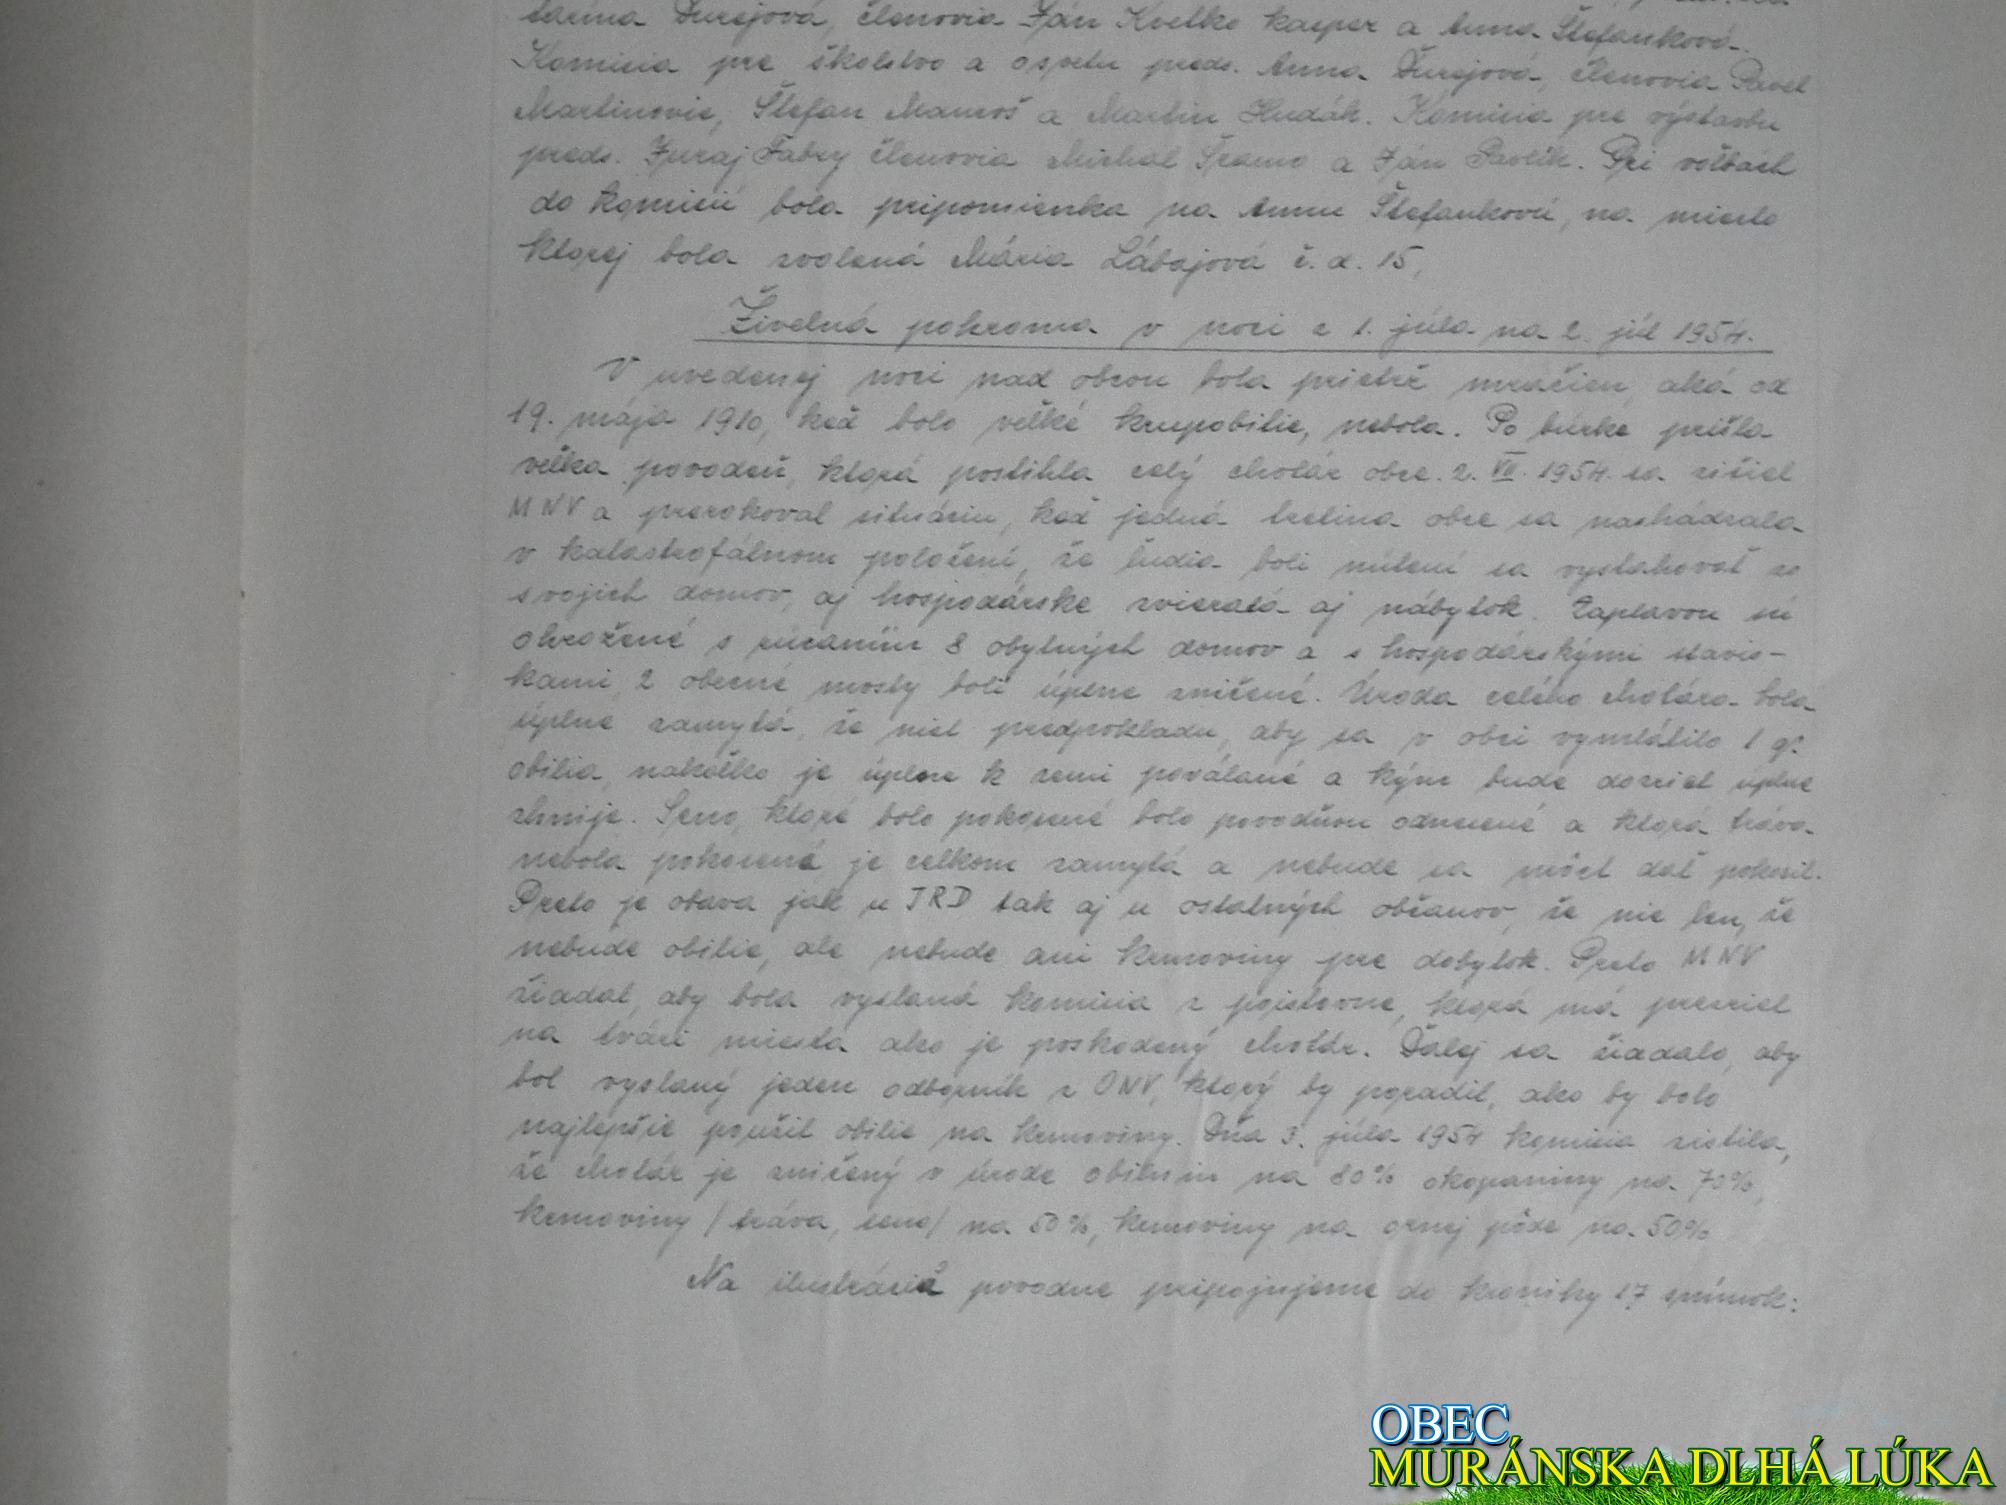 tarína Ďurejová, členovia Ján Kvetko kasper a Anna Štefanková.
Komisia pre školstvo a osvetu preds. Anna Ďurejová, členovia Pavel
Martinovie, Štefan Mamoš a Martin Hudák. Komisia pre výstavbu
preds. Juraj Fabry členovia Michal Šramo a Ján Pavlík. Pri voľbách
do komisií bola pripomienka na Annu Štefankovú, na miesto
ktorej bola zvolená Mária Lábajová č. d. 15,
Živelná pohroma v noci z 1. júla na 2. júl 1954.
V uvedenej noci nad obcou bola prietrž mračien, aká od
19. mája 1910, keď bolo veľké krupobitie, nebola. Po búrke prišla
veľka povodeň, ktorá postihla celý chotár obce. 2. VII. 1954. sa zišiel
MNV a prerokoval situáciu, keď jedná tretina obce sa nachádzala
v katastrofálnom položení, že ľudia boli nútení sa vysťahovať zo
svojich domov, aj hospodárske zvieratá aj nábytok. Záplavou sú
ohrožené s rúcaním 8 obytných domov a s hospodárskými stavis-
kami, 2 obecné mosty boli úplne zničené. Úroda celého chotára bola
úplne zamytá, že niet predpokladu, aby sa v obci vymlátilo 1 q.
obilia, nakoľko je úplne k zemi poválané a kým bude dozriet úplne
zhnije. Seno, ktoré bolo pokosené bolo povodňou odnesené a ktorá tráva
nebola pokosená je celkom zamytá a nebude sa môcť dať pokosiť.
Preto je obava jak u JRD tak aj u ostatných občanov, že nie len, že
nebude obilie, ale nebude ani krmoviny pre dobytok. Preto MNV
žiadal, aby bola vyslaná komisia z poisťovne, ktorá má prezrieť
na tvári miesta ako je poskodený chotár. Ďalej sa žiadalo, aby
bol vyslaný jeden odborník z ONV, ktorý by poradil, ako by bolo
najlepšie použiť obilie na krmoviny. Dňa 3. júla 1954 komisia zistila,
že chotár je zničený v úrode obilnín na 80% okopaniny na 70%,
krmoviny /tráva, seno/ na 50%, krmoviny na ornej pôde na 50%
Na ilustráciu povodne pripojujeme do kroniky 17 snímok:
OBEC
MURÁNSKA DLHÁ LÚKA